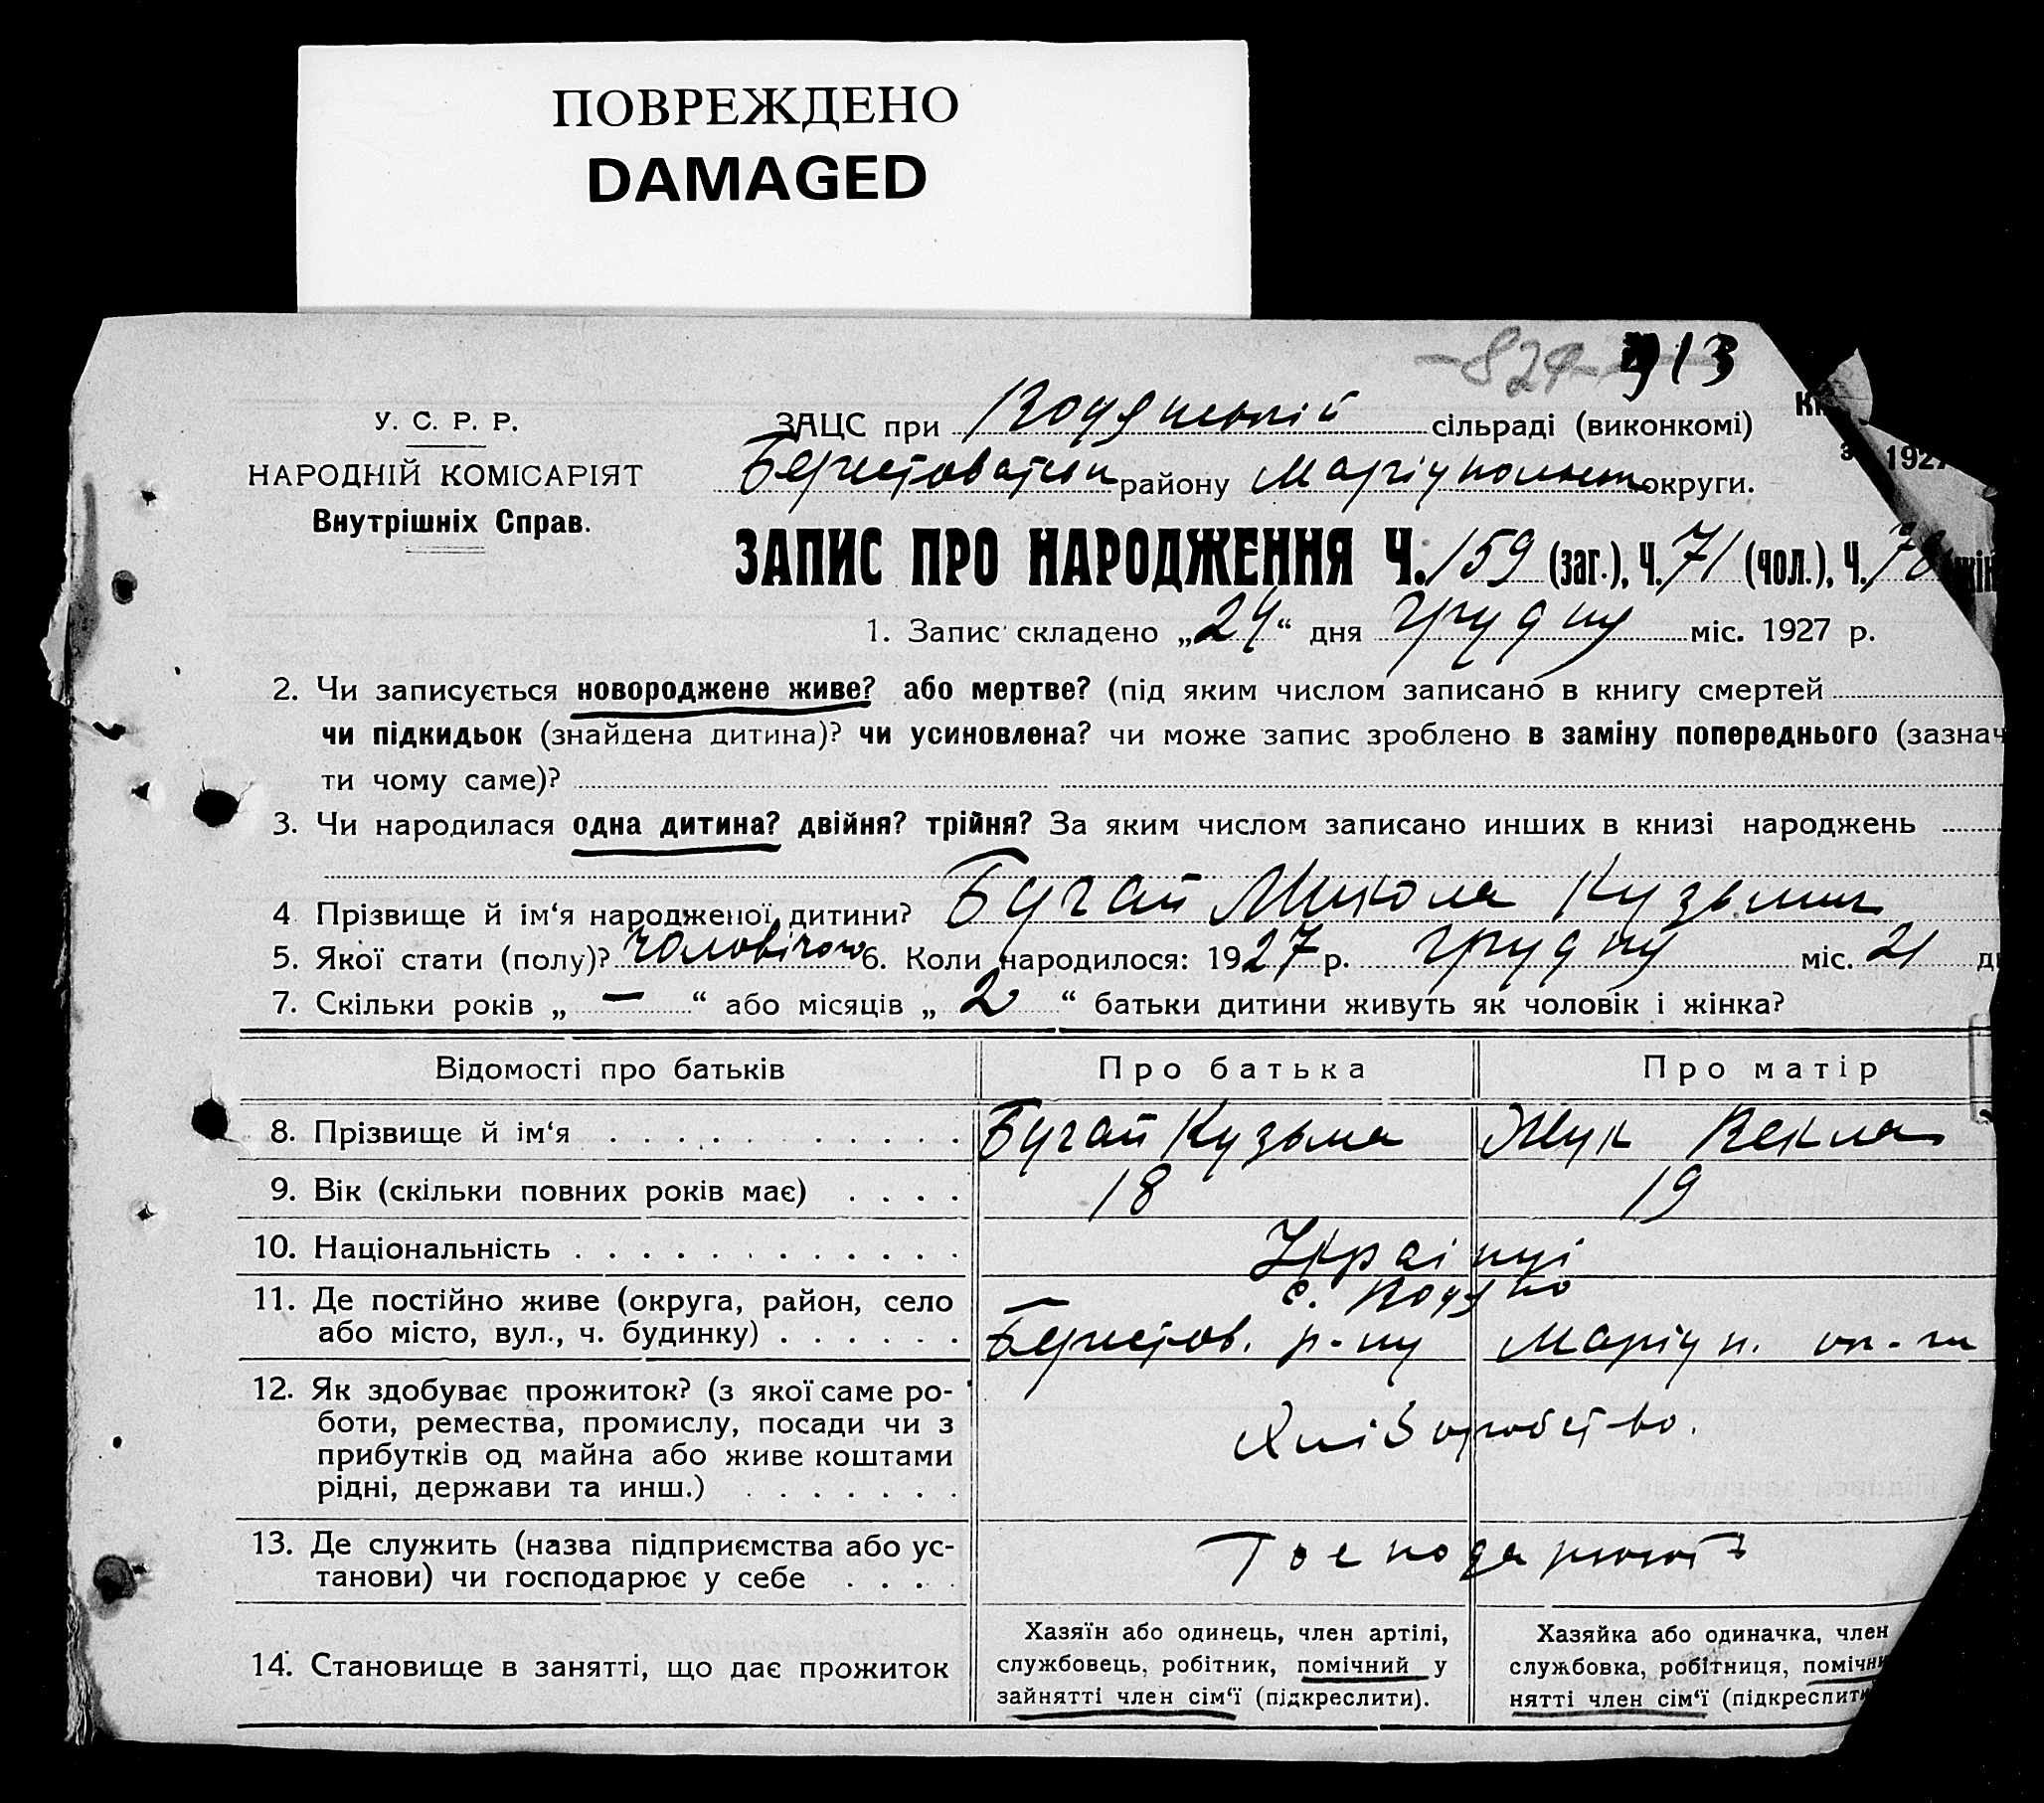 ПОВРЕЖДЕНО
DAMAGED
-824- 913
У. С. Р. Р.
НАРОДНІЙ КОМІСАРІЯТ
Внутрішніх Справ.
ЗАЦС при Водянській сільраді (виконкомі)
району Маріупольської округи.
1927
ЗАПИС ПРО НАРОДЖЕННЯ Ч. 159 (заг.), Ч. 71 (чол.), Ч.
1. Запис складено „24“ дня грудня міс. 1927 р.
2. Чи записується новороджене живе? або мертве? (під яким числом записано в книгу смертей
чи підкидьок (знайдена дитина)? чи усиновлена? чи може запис зроблено в заміну попереднього (зазнач
ти чому саме)?
3. Чи народилася одна дитина? двійня? трійня? За яким числом записано инших в книзі народжень
4 Прізвище й ім‘я народженої дитини? Бугай Микола Кузьмич
5. Якої стати (полу)? чоловічого 6. Коли народилося: 1927 р. грудня міс. 21 д
7. Скільки років „ — “ або місяців „ 2 “ батьки дитини живуть як чоловік і жінка?
Відомості про батьків Про батька Про матір
8. Прізвище й ім‘я Бугай Кузьма Жук Векла
9. Вік (скільки повних років має) 18 19
10. Національність Українці
11. Де постійно живе (округа, район, село с. Водяно
або місто, вул., ч. будинку) Берестов. р-ну Маріуп. ок-ги
12. Як здобуває прожиток? (з якої саме ро-
боти, ремества, промислу, посади чи з Хліборобство.
прибутків од майна або живе коштами
рідні, держави та инш.)
13. Де служить (назва підприємства або ус- Господарюють
танови) чи господарює у себе
14. Становище в занятті, що дає прожиток
Хазяїн або одинець, член артілі,
службовець, робітник, помічний у
зайнятті член сім‘ї (підкреслити).
Хазяйка або одиначка, член
службовка, робітниця, помічни
нятті член сім‘ї (підкреслити